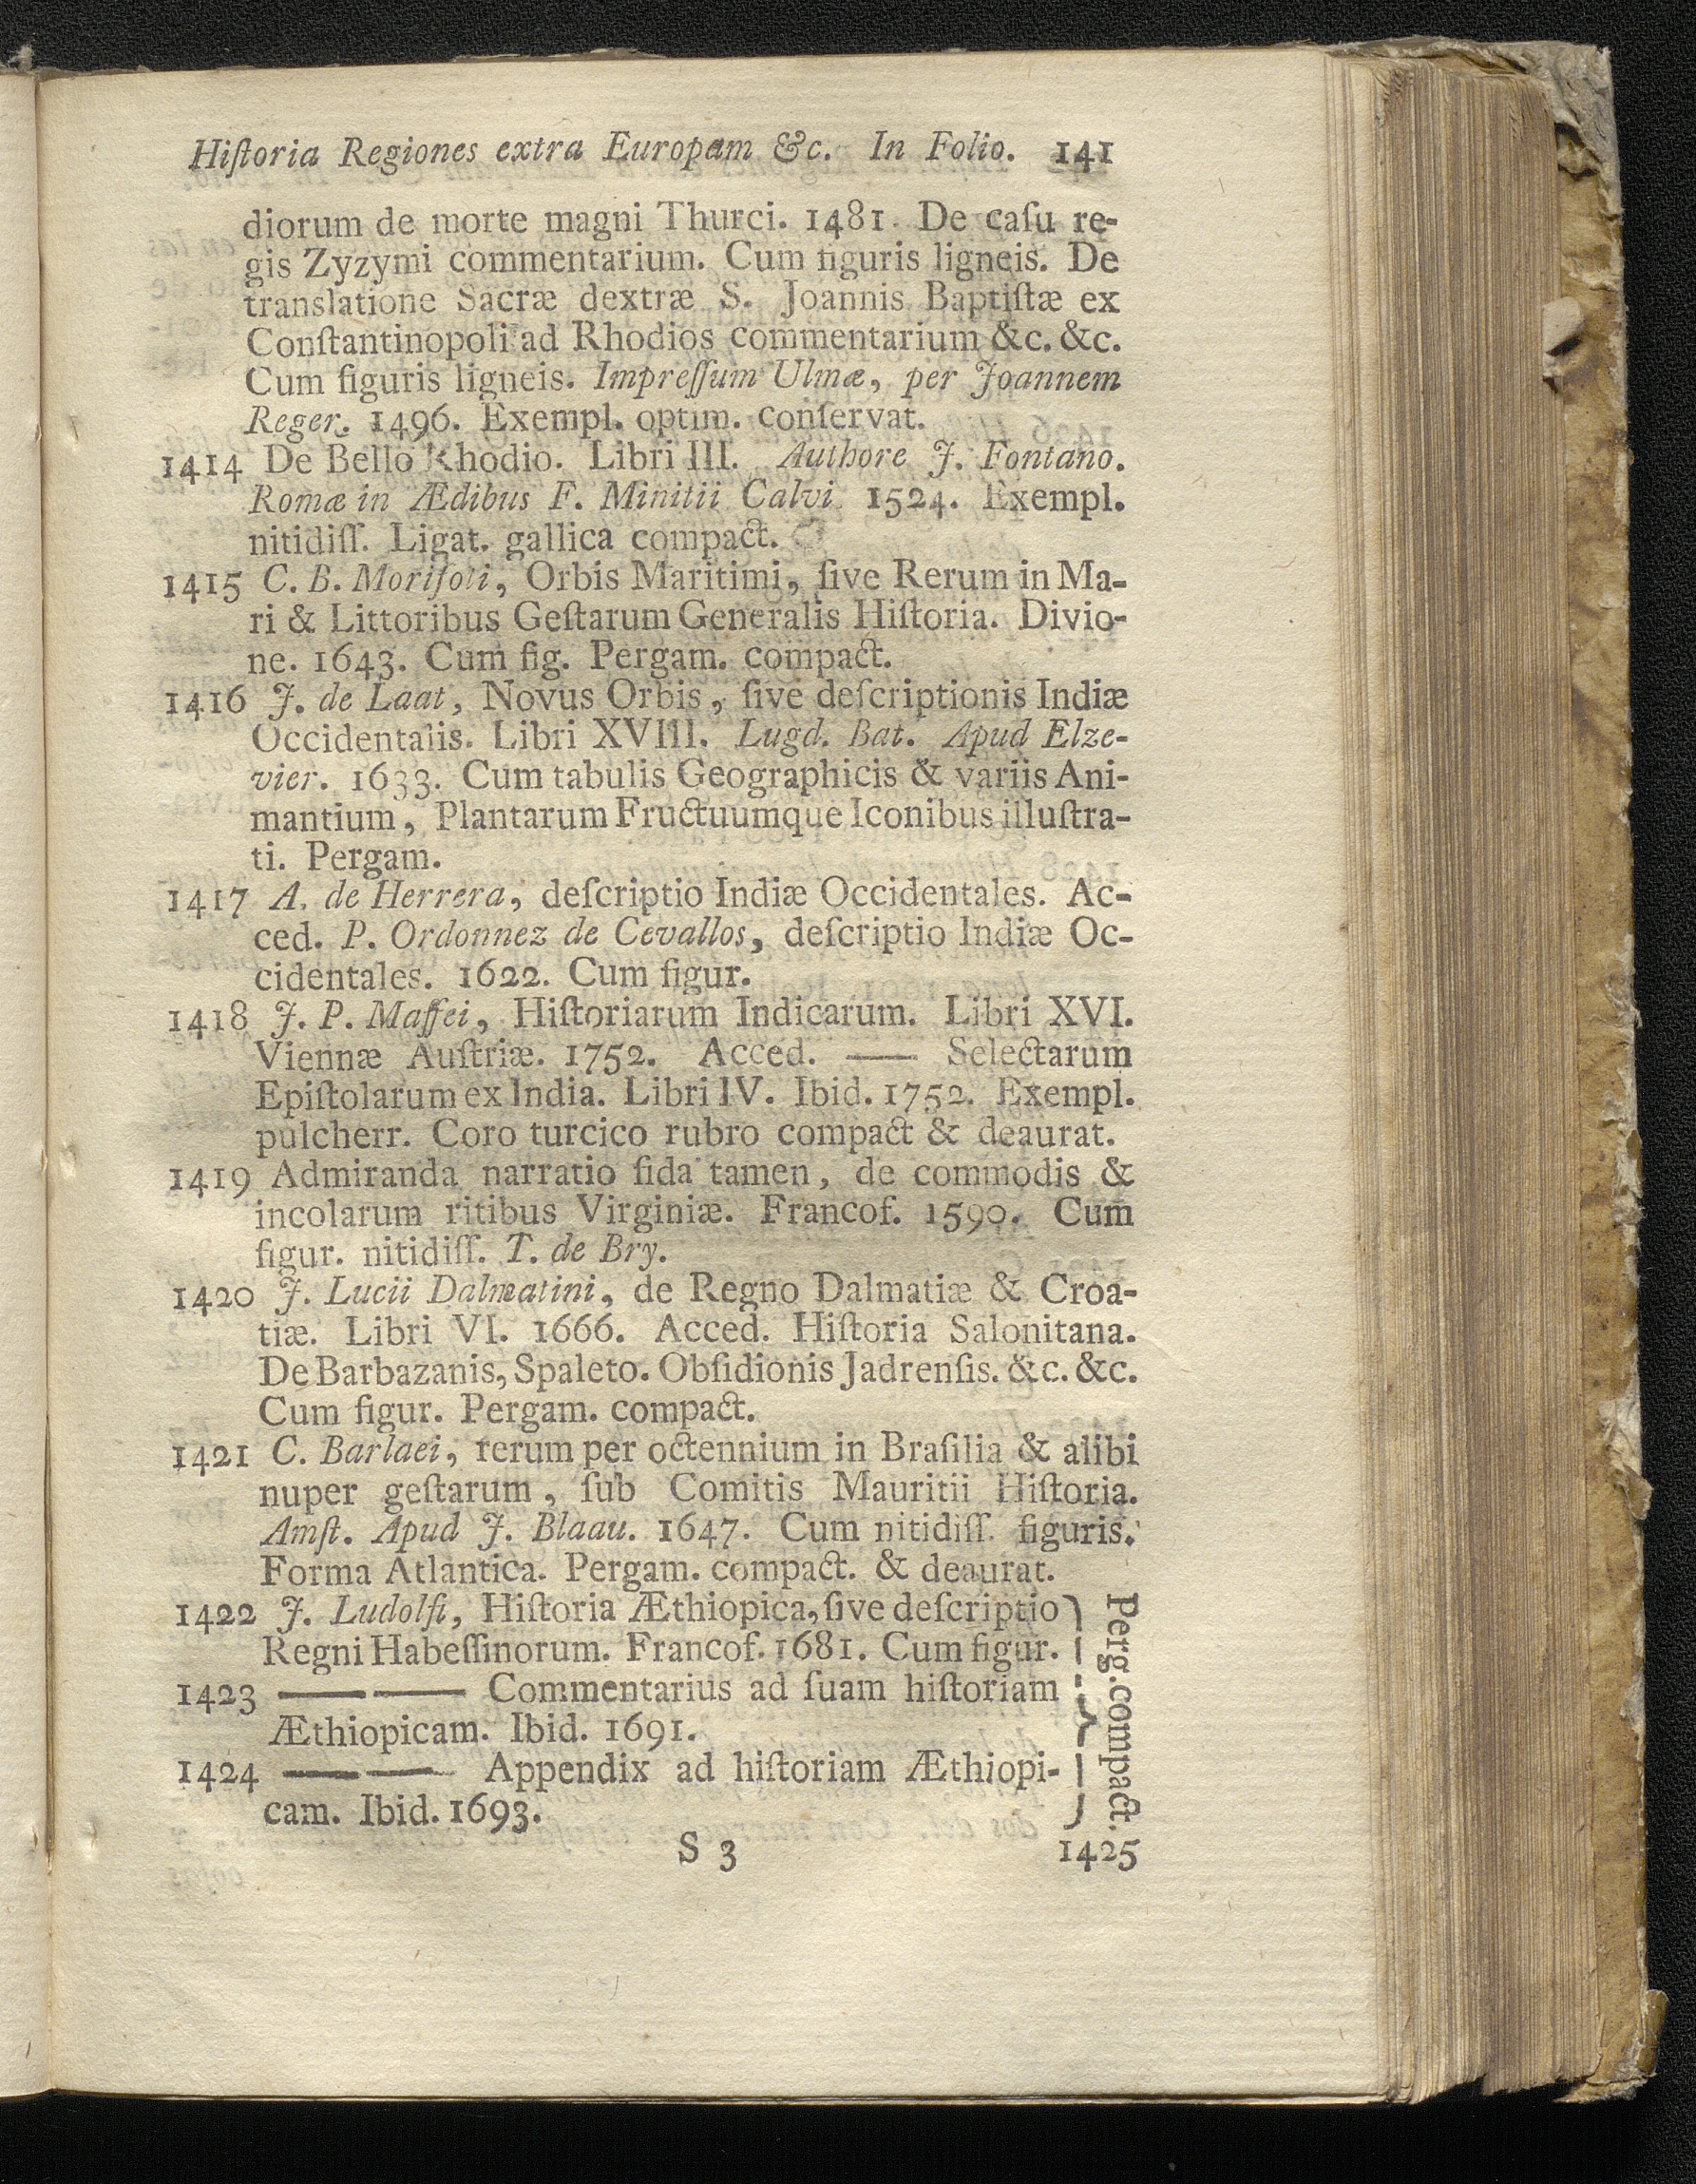 Hiſtoria Regiones extra Europam &c. In Folio. 141
diorum de morte magni Thurci. 1481. De caſu re-
gis Zyzymi commentarium. Cum figuris ligneis. De
translatione Sacræ dextræ S. Joannis Baptiſtæ ex
Conſtantinopoli ad Rhodios commentarium &c. &c.
Cum figuris ligneis. Impreſſum Ulmæ, per Joannem
Reger. 1496. Exempl. optim. conſervat.
1414 De Bello Rhodio. Libri III. Authore J. Fontano.
Romæ in Ædibus F. Minitii Calvi 1524. Exempl.
nitidiſſ. Ligat. gallica compact.
1415 C. B. Moriſoti, Orbis Maritimi, ſive Rerum in Ma-
ri & Littoribus Geſtarum Generalis Hiſtoria. Divio-
ne. 1643. Cum fig. Pergam. compact.
1416 J. de Laat, Novus Orbis, ſive deſcriptionis Indiæ
Occidentalis. Libri XVIII. Lugd. Bat. Apud Elze-
vier. 1633. Cum tabulis Geographicis & variis Ani-
mantium, Plantarum Fructuumque Iconibus illuſtra-
ti. Pergam.
1417 A. de Herrera, deſcriptio Indiæ Occidentales. Ac-
ced. P. Ordonnez de Cevallos, deſcriptio Indiæ Oc-
cidentales. 1622. Cum figur.
1418 J. P. Maffei, Hiſtoriarum Indicarum. Libri XVI.
Viennæ Auſtriæ. 1752. Acced. —— Selectarum
Epiſtolarum ex India. Libri IV. Ibid. 1752. Exempl.
pulcherr. Coro turcico rubro compact & deaurat.
1419 Admiranda narratio fida tamen, de commodis &
incolarum ritibus Virginiæ. Francof. 1590. Cum
figur. nitidiſſ. T. de Bry.
1420 J. Lucii Dalmatini, de Regno Dalmatiæ & Croa-
tiæ. Libri VI. 1666. Acced. Hiſtoria Salonitana.
De Barbazanis, Spaleto. Obſidionis Jadrenſis. &c. &c.
Cum figur. Pergam. compact.
1421 C. Barlaei, rerum per octennium in Braſilia & alibi
nuper geſtarum, ſub Comitis Mauritii Hiſtoria.
Amſt. Apud J. Blaau. 1647. Cum nitidiſſ. figuris.
Forma Atlantica. Pergam. compact. & deaurat.
1422 J. Ludolfi, Hiſtoria Æthiopica, ſive deſcriptio
Regni Habeſſinorum. Francof. 1681. Cum figur.
1423 —— —— Commentarius ad ſuam hiſtoriam
Æthiopicam. Ibid. 1691.
1424 —— —— Appendix ad hiſtoriam Æthiopi-
cam. Ibid. 1693.
Perg. compact.
S 3 1425